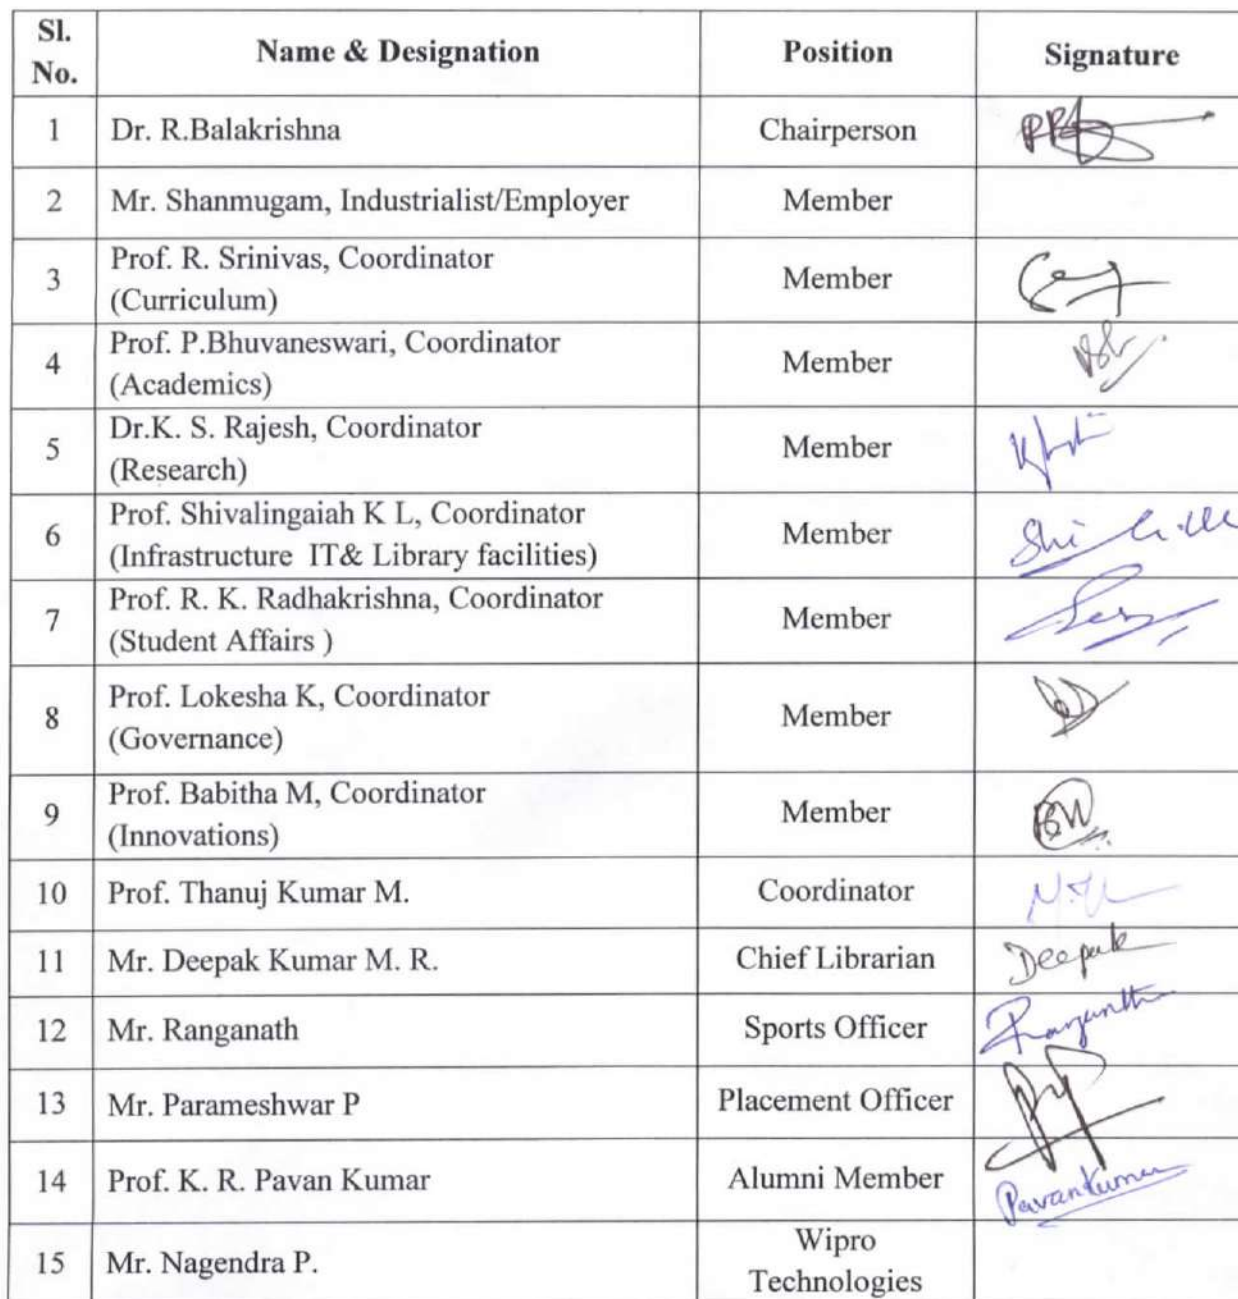 Sl. No. Name & Designation Position Signature
1 Dr. R.Balakrishna Chairperson
2 Mr. Shanmugam, Industrialist/Employer Member
3 Prof. R. Srinivas, Coordinator
(Curriculum) Member
4 Prof. P.Bhuvaneswari, Coordinator
(Academics) Member
5 Dr.K. S. Rajesh, Coordinator
(Research) Member
6 Prof. Shivalingaiah K L, Coordinator
(Infrastructure IT& Library facilities) Member
7 Prof. R. K. Radhakrishna, Coordinator
(Student Affairs ) Member
8 Prof. Lokesha K, Coordinator
(Governance) Member
9 Prof. Babitha M, Coordinator
(Innovations) Member
10 Prof. Thanuj Kumar M. Coordinator
11 Mr. Deepak Kumar M. R. Chief Librarian Deepak
12 Mr. Ranganath Sports Officer
13 Mr. Parameshwar P Placement Officer
14 Prof. K. R. Pavan Kumar Alumni Member PavanKumar
15 Mr. Nagendra P. Wipro
Technologies